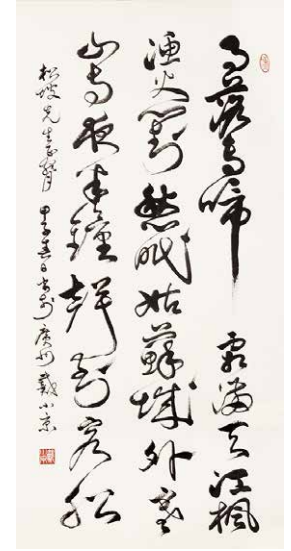 月落烏啼霜滿天江楓
漁火對愁眠姑蘇城外寒
山寺夜半鐘聲到客船
松坡先生 甲子春日書於廣州戴小京